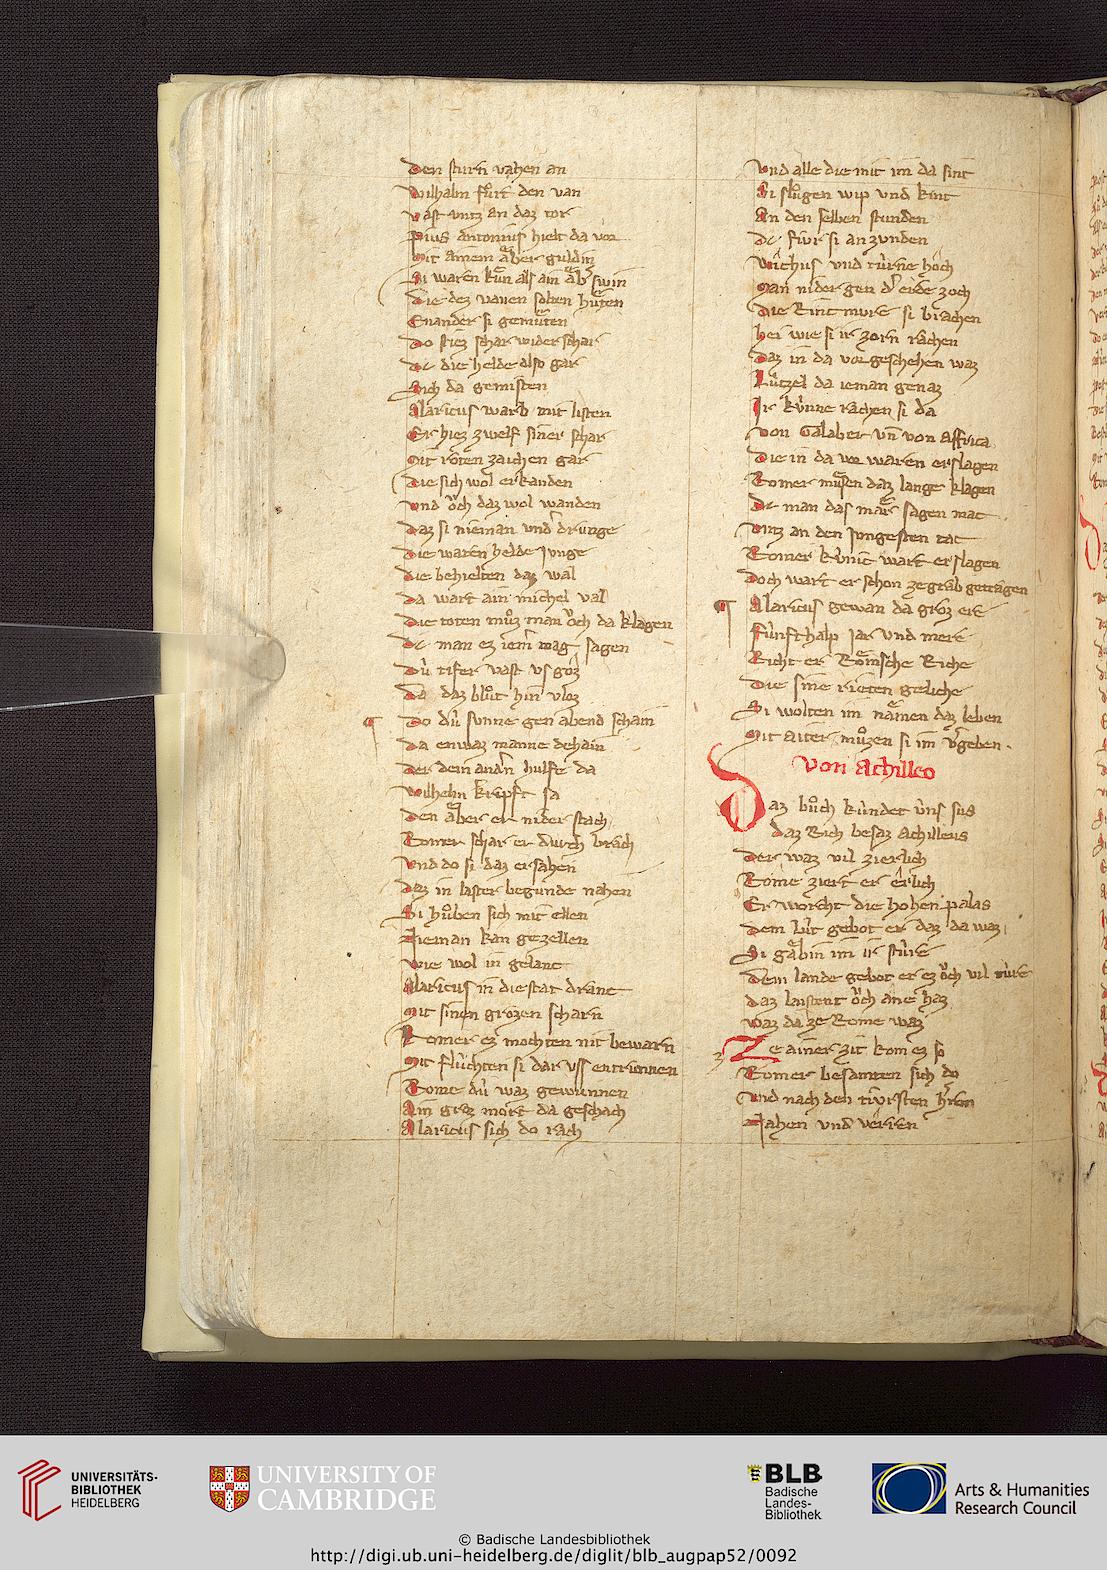 Den sturn vahen an
Wilhaln fůrt den van
Vast vntz an daz tor
Pius antonius hielt da vor
Mit ainem äber guldin
Si warẽ kün als ain äb swin
Die dez vanen solten hůten
Enander si gemůten
Do stiez schar wider schar
Dc die helde also gar
Sich da gemisten
Alaricus warb mit listen
Er hiez zwelf siner schar
Mit roten zaichen gar
Die sich wol erkanden
Vnd och daz wol wanden
Daz si nieman vnd drunge
Die waren helde junge
Die behielten daz wal
Da wart ain michel val
Die toten můz man och da klagen
Dc man ez iem mag sagen
Dů tifer vast vs goz
Da daz blůt hin vloz
Do dů sunne gen abend schain
Da enwaz manne dehain
Der dem andn hulfe da
Wilheln kripft sa
Den äber er nider stach
Romer schar er durch brach
Vnd do si daz ersahen
Daz in laster begunde nahen
Si hůben sich mit ellen
Nieman kan gezellen
Wie wol in gelanc
Alaricus in die stat dranc
Mit sinen grozen scharn
Romer ez mochten nit bewarn
Mit flůchten si dar vss entrunnen
Rome dů waz gewunnen
Ain groz mort da geschach
Alaricus sich do rach
Vnd alle die mit im da sint
Si slůgen wip vnd kint
An den selben stunden
Dc fiur si anzunden
Wichus vnd türne hoch
Man nider gen d erde zoch
Die Rinc mure si brachen
Hei wie si ir zorn rachen
Daz in da vor geschehen waz
Lützel da ieman genaz
Ir künne rachen si da
Von Calaber vn von affrica
Die in da vor waren erslagen
Romer můsen daz lange klagen
Dc man das mär sagen mac
Vntz an den jungesten tac
Romer künic wart erslagen
Doch wart er schon ze grab getragen
Alaricus gewan da groz ere
Fünfthalp jar vnd mere
Richt er Römsche Riche
Die sine rieten geliche
Si wolten im nämen daz leben
Mit aiter můzen si im vgeben.
Von Achilleo
Daz bůch kündet üns sus
Daz Rich besaz Achilleus
Der waz vil zierlich
Rome ziert er erlich
Er worcht die hohen palas
Dem lüt gebot er daz da waz
Si gäbin im ir stüre
Dem lande gebot er ez och vil türe
Daz laistent och ane haz
Waz da ze Rome waz
Ze ainer zit kom ez so
Romer besamten sich do
Vnd nach den tiursten hren
Nahen vnd verren
UNIVERSITÄTS-
BIBLIOTHEK
HEIDELBERG
UNIVERSITY OF
CAMBRIDGE
BLB
Badische
Landes-
Bibliothek
Arts & Humanities
Research Council
© Badische Landesbibliothek
http://digi.ub.uni-heidelberg.de/diglit/blb_augpap52/0092